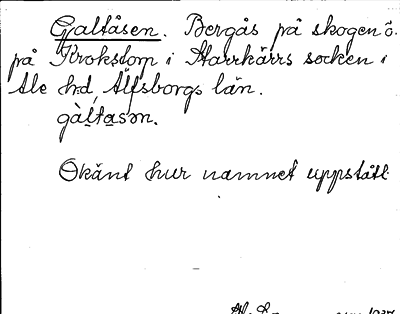 Galtåsen. Bergås på skogen ö.
på Krokstorp i Starrkärrs socken i
Ale hd, Älfsborgs län.
gàltasən.
Okänt hur namnet uppstått